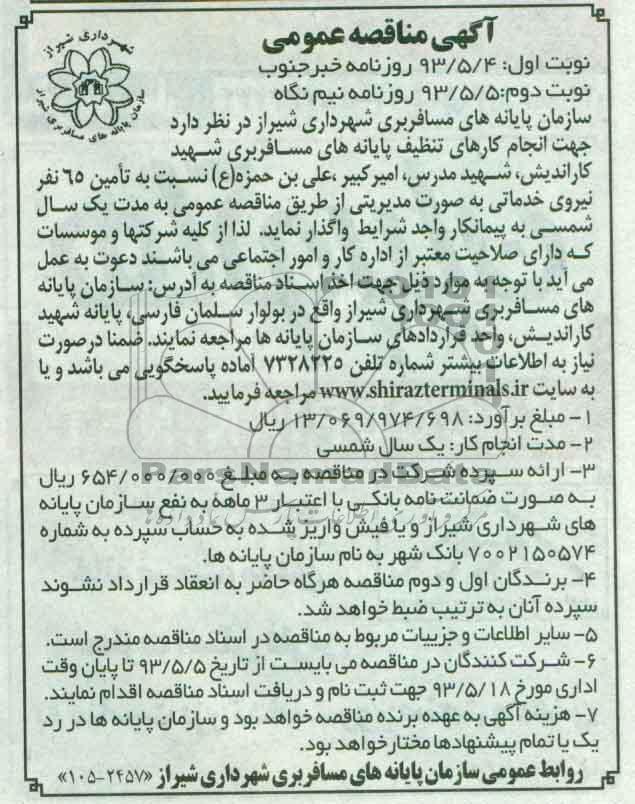 آگهی مناقصه عمومی
شهرداری شیراز
سازمان پایانه های مسافربری شیراز
نوبت اول: ۹۳/۵/۴ روزنامه خبرجنوب
نوبت دوم:۹۳/۵/۵ روزنامه نیم نگاه
سازمان پایانه های مسافربری شهرداری شیراز در نظر دارد
جهت انجام کارهای تنظیف پایانه های مسافربری شهید
کاراندیش، شهید مدرس، امیرکبیر ،علی بن حمزه(ع) نسبت به تأمین ۶۵ نفر
نیروی خدماتی به صورت مدیریتی از طریق مناقصه عمومی به مدت یک سال
شمسی به پیمانکار واجد شرایط واگذار نماید. لذا از کلیه شرکتها و موسسات
که دارای صلاحیت معتبر از اداره کار و امور اجتماعی می باشند دعوت به عمل
می آید با توجه به موارد ذیل جهت اخذ اسناد مناقصه به آدرس: سازمان پایانه
های مسافربری شهرداری شیراز واقع در بولوار سلمان فارسی، پایانه شهید
کاراندیش، واحد قراردادهای سازمان پایانه ها مراجعه نمایند. ضمنا درصورت
نیاز به اطلاعات بیشتر شماره تلفن ۷۳۲۸۲۲۵ آماده پاسخگویی می باشد و یا
به سایت www.shirazterminals.ir مراجعه فرمایید.
۱- مبلغ برآورد: ۱۳/۰۶۹/۹۷۴/۶۹۸ ریال
۲- مدت انجام کار: یک سال شمسی
ParsNamadData
۳- ارائه سپرده شرکت در مناقصه به مبلغ ۶۵۴/۰۰۰/۰۰۰ ریال
به صورت ضمانت نامه بانکی با اعتبار ۳ ماهه به نفع سازمان پایانه
های شهرداری شیراز و یا فیش واریز شده به حساب سپرده به شماره
۷۰۰۲۱۵۰۵۷۴ بانک شهر به نام سازمان پایانه ها.
۴- برندگان اول و دوم مناقصه هرگاه حاضر به انعقاد قرارداد نشوند
سپرده آنان به ترتیب ضبط خواهد شد.
۵- سایر اطلاعات و جزییات مربوط به مناقصه در اسناد مناقصه مندرج است.
۶- شرکت کنندگان در مناقصه می بایست از تاریخ ۹۳/۵/۵ تا پایان وقت
اداری مورخ ۹۳/۵/۱۸ جهت ثبت نام و دریافت اسناد مناقصه اقدام نمایند.
۷- هزینه آگهی به عهده برنده مناقصه خواهد بود و سازمان پایانه ها در رد
یک یا تمام پیشنهادها مختار خواهد بود.
روابط عمومی سازمان پایانه های مسافربری شهرداری شیراز «۲۴۵۷-۱۰۵»